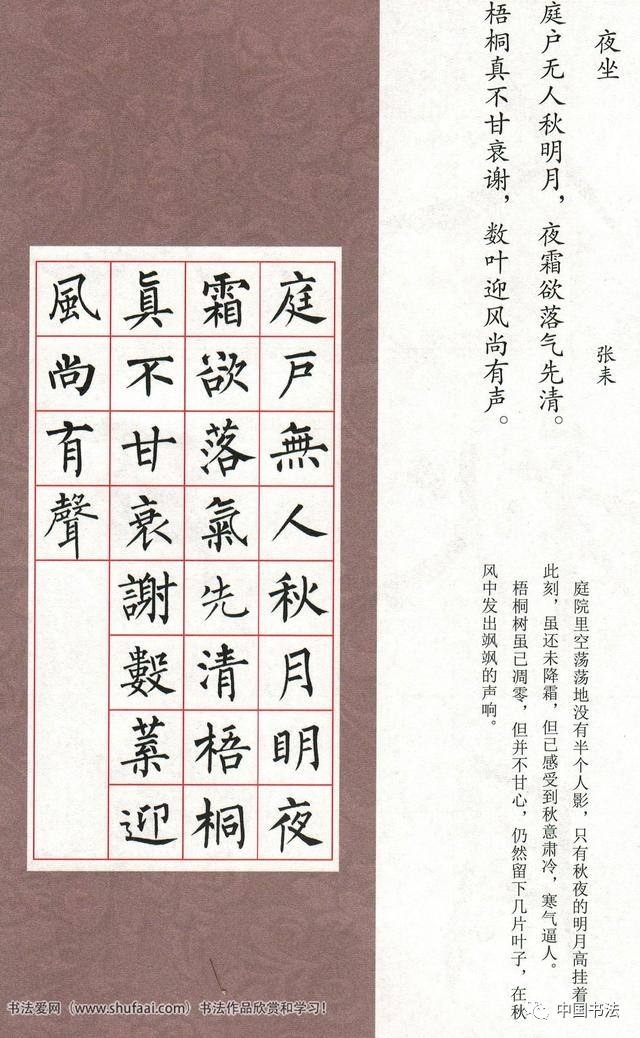 夜坐
张耒
庭户无人秋明月，夜霜欲落气先清。
梧桐真不甘衰谢，数叶迎风尚有声。
庭院里空荡荡地没有半个人影，只有秋夜的明月高挂着
此刻，虽还未降霜，但已感受到秋意肃冷，寒气逼人。
梧桐树虽已凋零，但并不甘心，仍然留下几片叶子，在秋
风中发出飒飒的声响。
庭戶無人秋月明夜
霜欲落氣先清梧桐
真不甘衰謝數葉迎
風尚有聲
书法爱网（www.shufaai.com）书法作品欣赏和学习！
中国书法